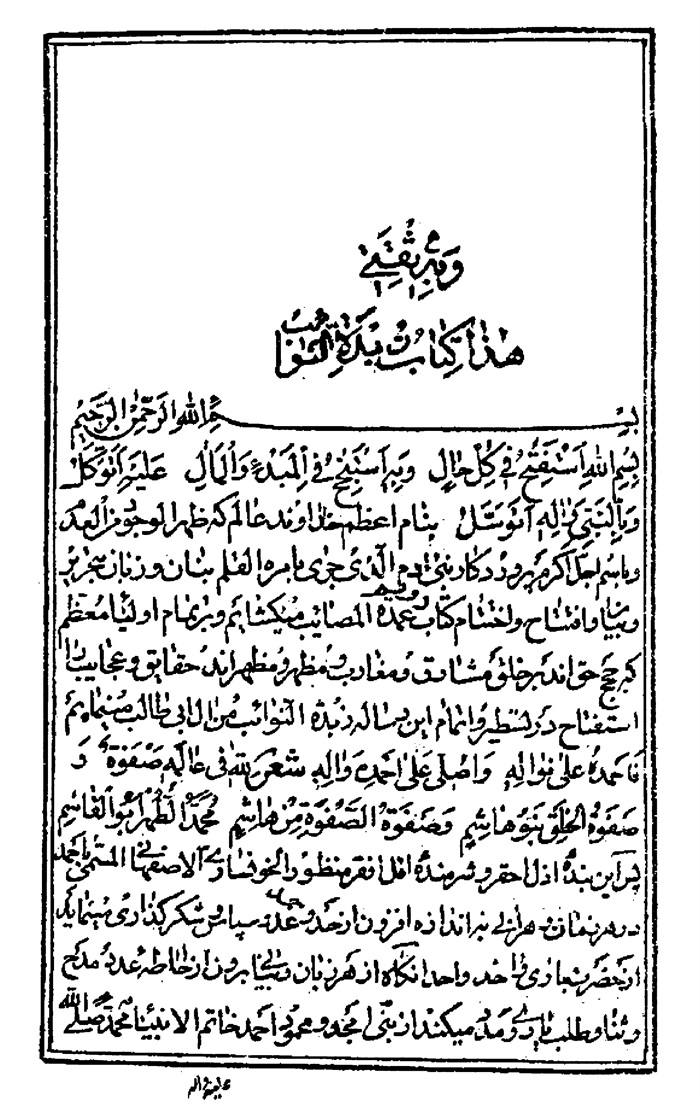 وبه ثقتی
هذا کتاب زبدة النوائب
بسم الله الرحمن الرحیم
بسم الله استفتح فی کل حال وبه استنجح فی المبدء والمال علیه اتوکل
وبالنبی واله اتوسل بنام اعظم خداوند عالم که ظهر الوجود من العدم
وباسم اجل اکرم پروردگار بنی ادم الذی جری بامره القلم بنان و زبان تحریر
وبیان وافتتاح واختتام کتاب عمدة المصائب میکشایم وبرتمام اولیاء معظم
که حجج حق اند برخلق مشارق ومغارب ومظهر ومظهراند حقایق وعجایب را
استفتاح در تسطیر واتمام این رساله زبدة النوائب من ال ابی طالب مینمایم
فاحمده علی نواله واصلی علی احمده واله شعر لله فی عالمه صفوة و
صفوة الخلق بنو هاشم وصفوة الصفوة من هاشم محمد الطهر ابو القاسم
پس این بنده اذل احقر وشرمنده اقل افقر منظور الخوانساری الاصفهانی المسمی باحمد
در هر زمان و هر انی بی اندازه افزون از حد وعد سپاس شکر گذاری مینماید
از حضرت باری واحد انگاه از هر زبان وبیانی برون از احاطه عدد مدیح
وثنا وطلب یاری ومدد میکند از نبی امجد ومحمود احمد خاتم الانبیاء محمد صلی الله
علیه واله